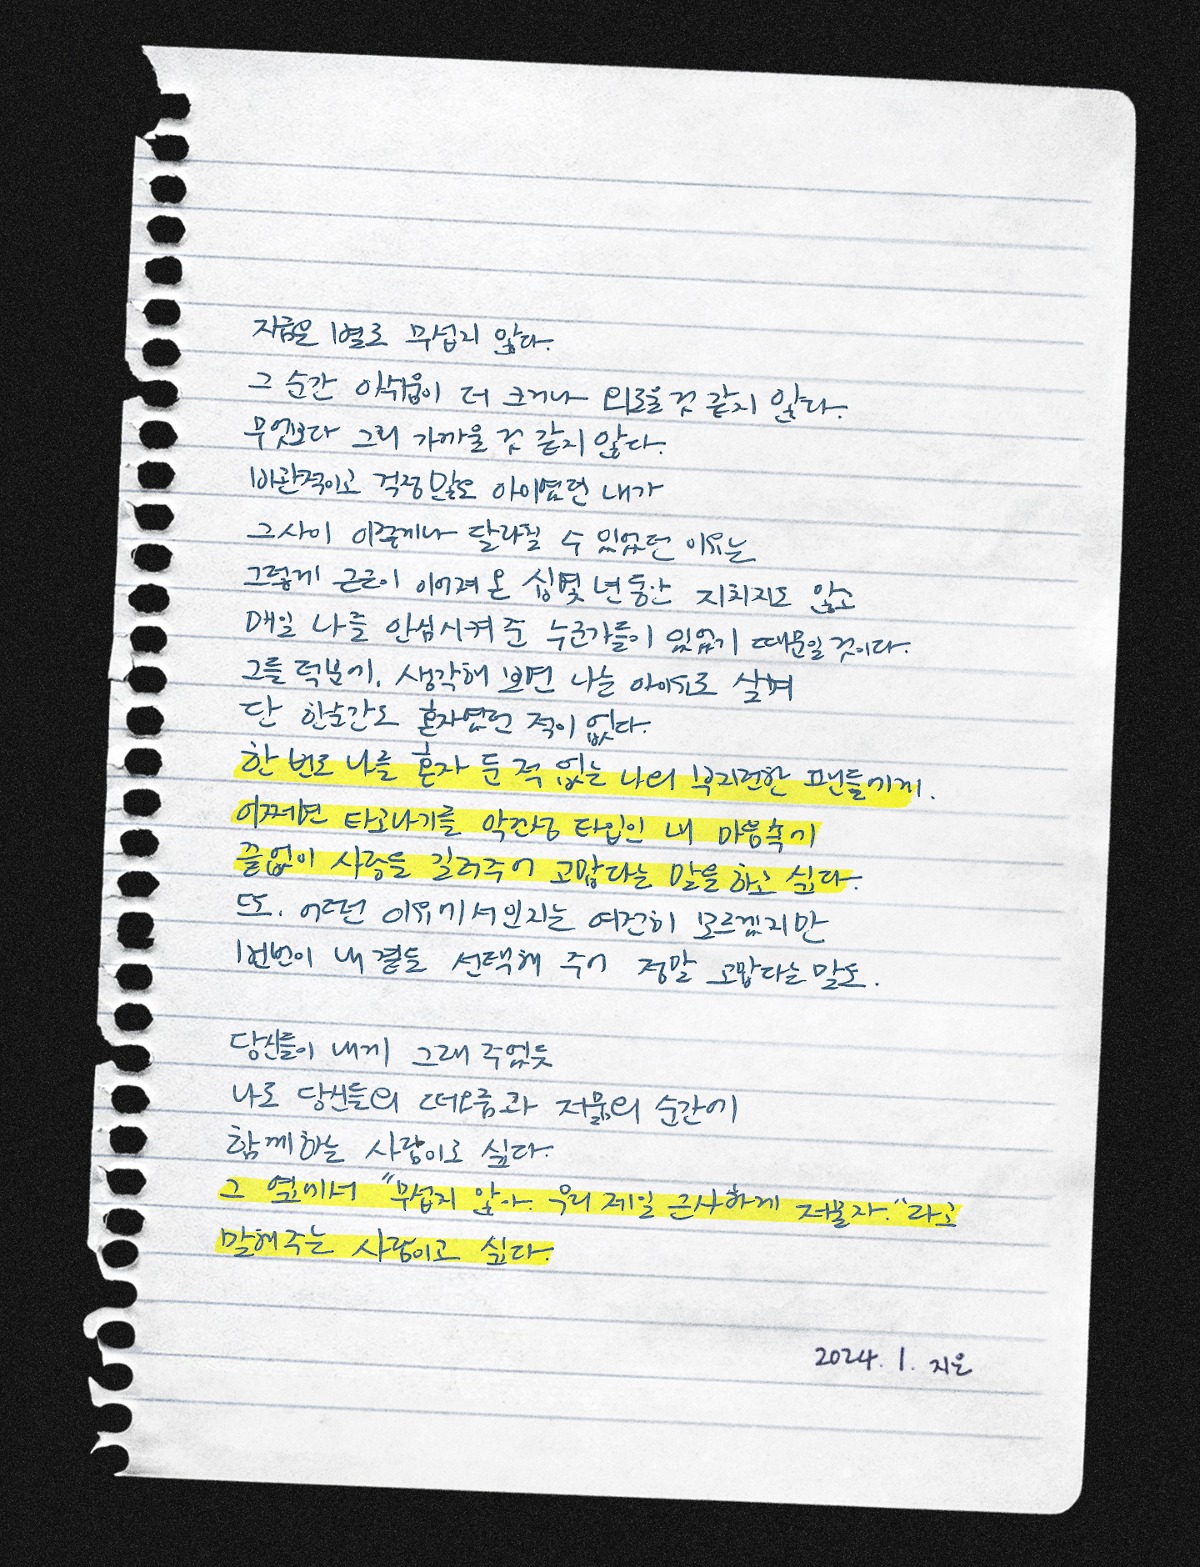 지금은 별로 무섭지 않다.
그 순간 아쉬움이 더 크거나 외로울 것 같지 않다.
무엇보다 그리 가까울 것 같지 않다.
비관적이고 걱정 많던 아이였던 내가
그 사이 이렇게나 달라질 수 있었던 이유는
그렇게 근근이 이어져 온 십몇 년 동안 지치지도 않고
매일 나를 안심시켜 준 누군가들이 있었기 때문일 것이다.
그들 덕분에, 생각해 보면 나는 아이유로 살며
단 한순간도 혼자였던 적이 없다.
한 번도 나를 혼자 둔 적 없는 나의 부지런한 팬들에게.
어쩌면 타고나기를 악건성 타입인 내 마음속에
끝없이 사랑을 길러주어 고맙다는 말을 하고 싶다.
또, 어떤 이유에서인지는 여전히 모르겠지만
번번이 내 곁을 선택해 주어 정말 고맙다는 말도.
당신들이 내게 그래 주었듯
나도 당신들의 떠오름과 저묾의 순간에
함께하는 사람이고 싶다.
그 옆에서 "무섭지 않아. 우리 제일 근사하게 저물자."라고
말해주는 사람이고 싶다.
2024. 1. 지은